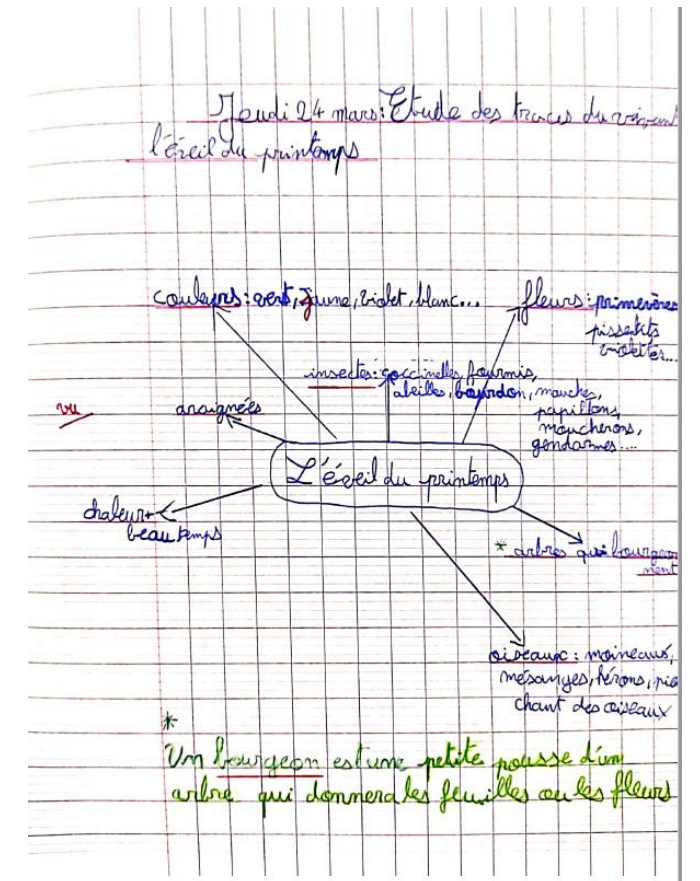 Jeudi 24 mars: Etude des traces du vivant
l'éveil du printemps
couleurs: vert, jaune, violet, blanc...
fleurs: primevères
pissenlits
violettes...
insectes: coccinelles, fourmis,
abeilles, bourdon, mouches,
papillons,
moucherons,
gendarmes....
vu
araignées
L'éveil du printemps
chaleur+
beau temps
* arbres qui bourgeon
nent
oiseaux: moineaux,
mésanges, hérons, pie
chant des oiseaux
*
Un bourgeon est une petite pousse d'un
arbre qui donnera les feuilles ou les fleurs